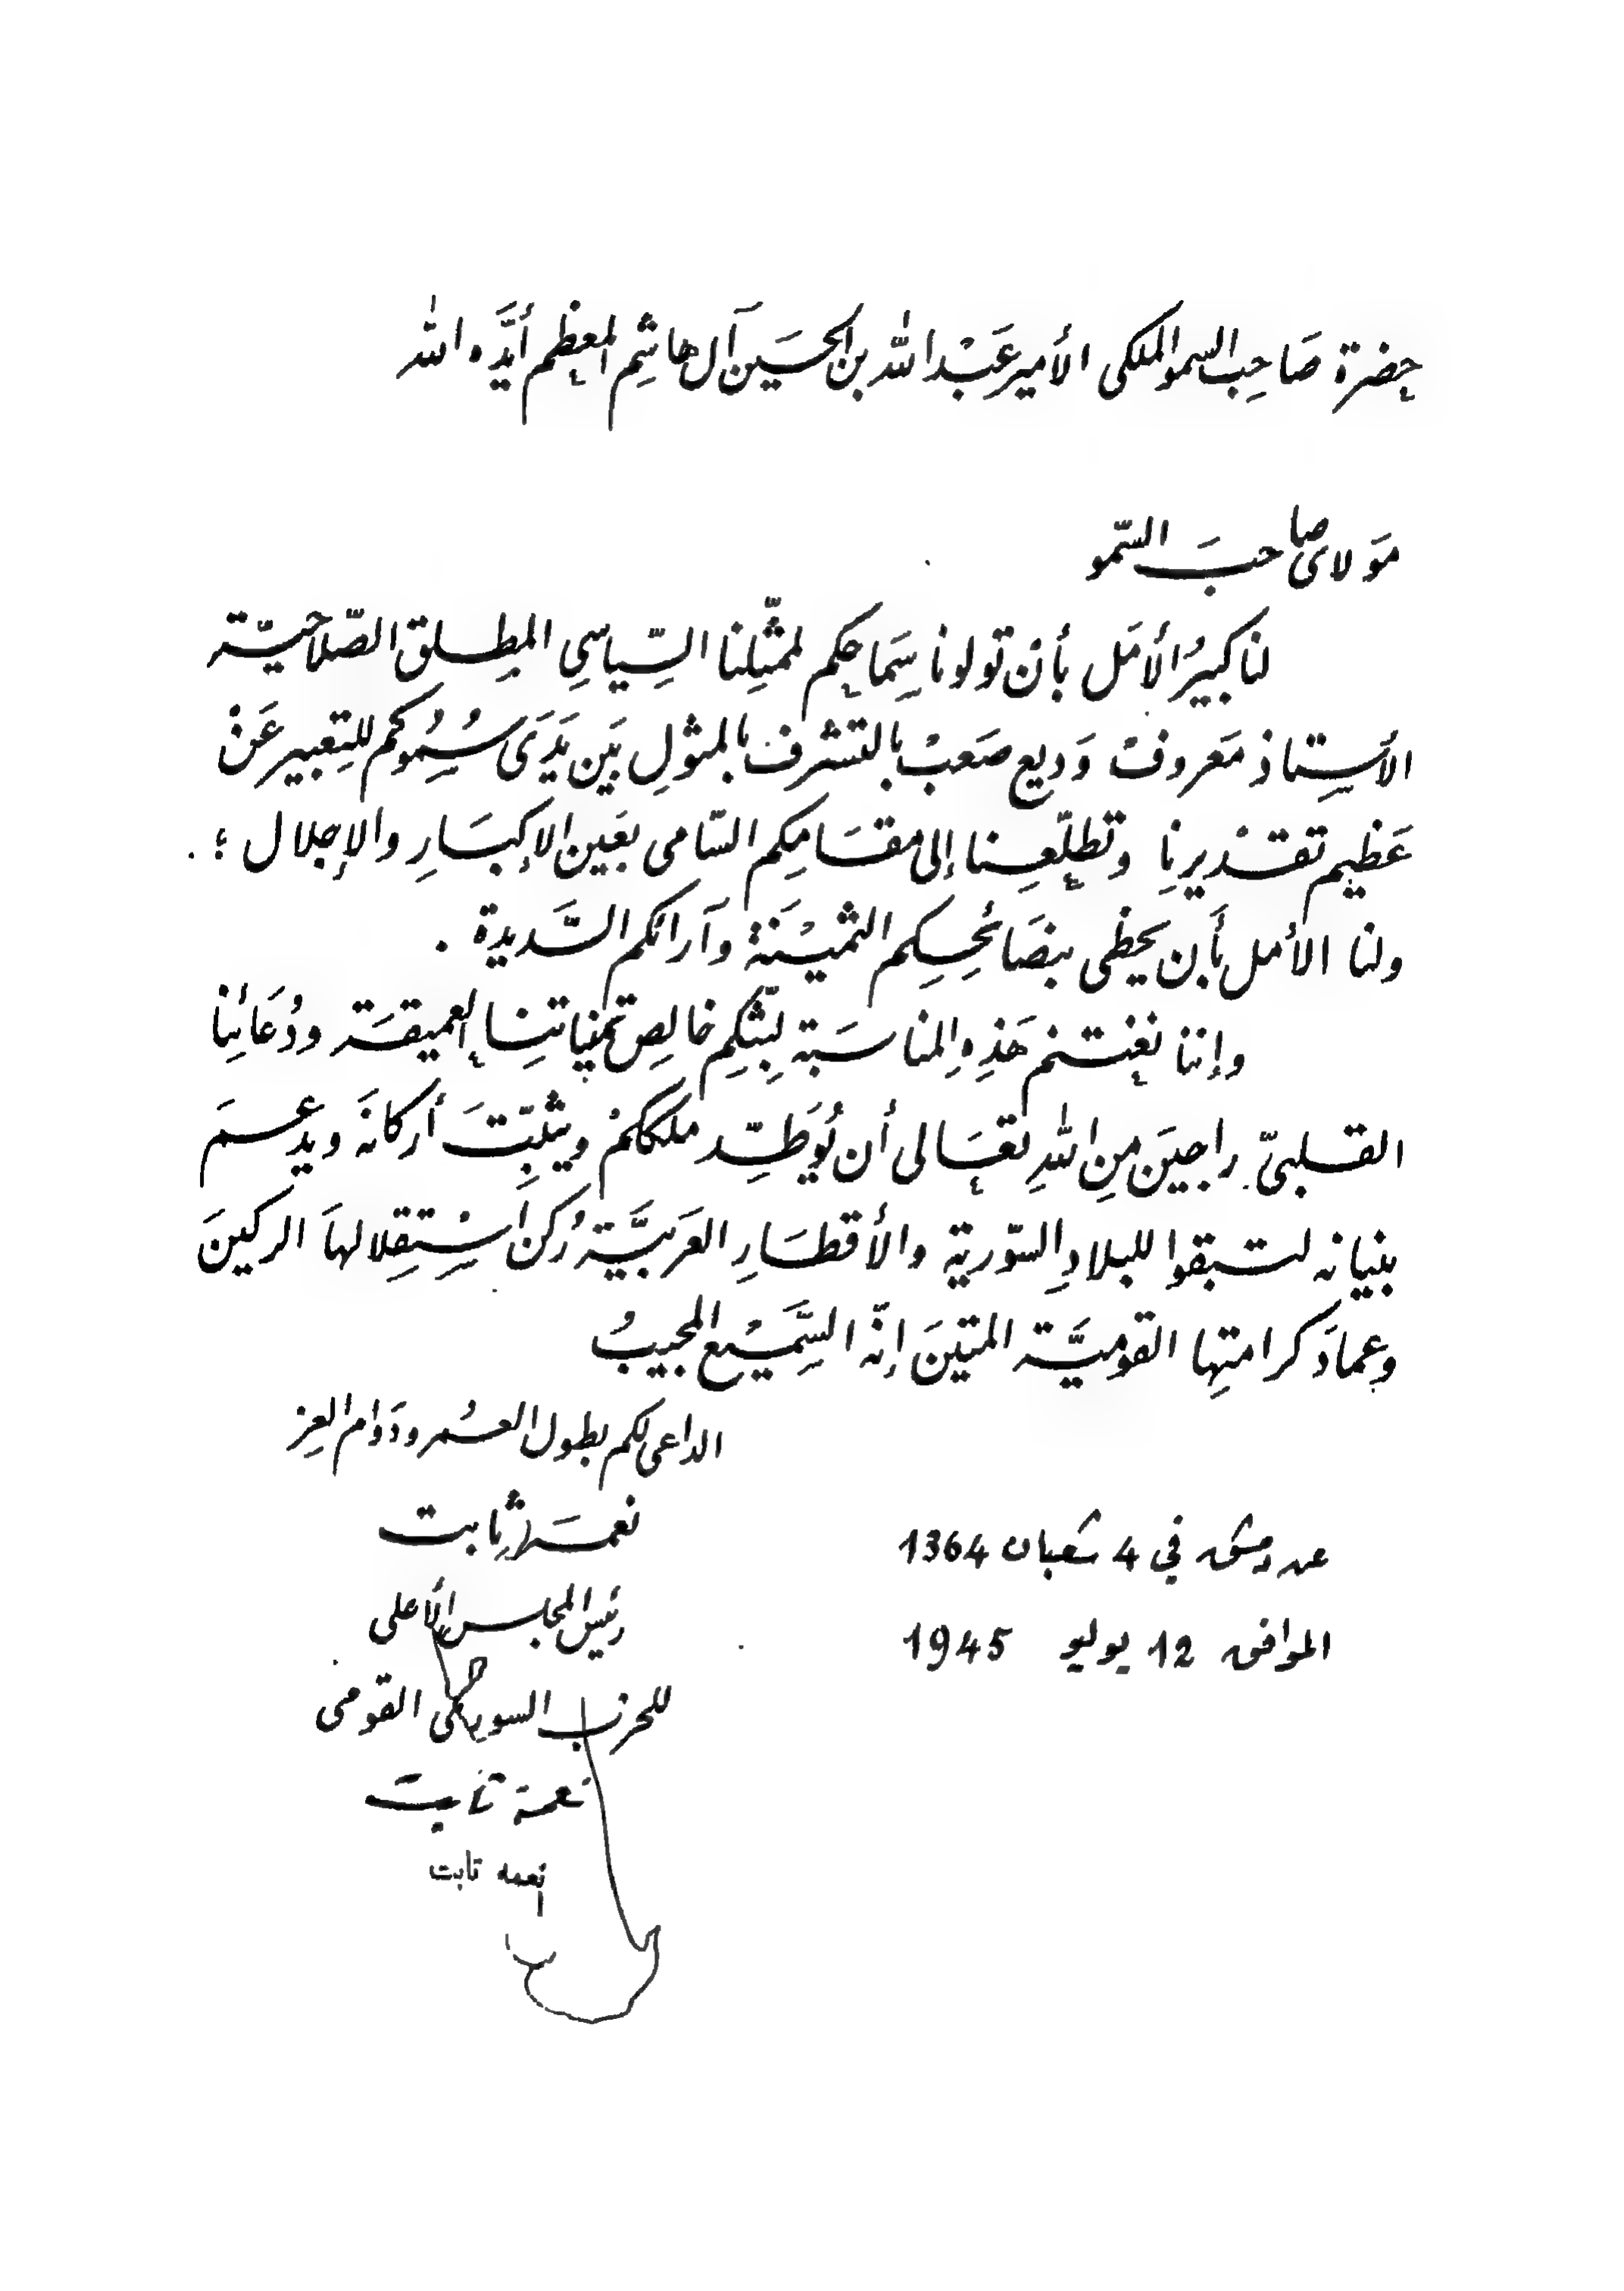 حضرة صَاحِب السمو الملكى الأمير عَبْد الله بن الحسَين آل هاشِم المعظم أيَّده الله
مَولاى صاحبَ السّمو
لنا كبيرُ الأمَل بأن تولونا سِمَاحكم لممثّلِنا السِّياسِي المطلق الصّلاحيّة
الأستاذ مَعروفْ وَديع صَعبْ بالتشرف بالمثولِ بَين يَدَى سُمُوكم للتعبير عَنْ
عَظيم تقدْيرنا وتطلّعِنا إلى مقسَامِكم السّامى بعَين الإكبَارِ والإجلال ؛
ولنا الأمل بأَن يحظى بنصَائحِكم الثميْنَة وآرائكم السَّديدة .
وإننا نغتنم هَذِهِ المناسَبة لبثّكِم خالِص تمنياتنِا العميقَة ودُعَائِنا
القلبىّ راجينَ مِن اللهِ تعَالى أن يُوَطِّد ملككمْ ويثبِّتَ أركانَه ويدعمَ
بنيانه لتبقوا للبلادِ السّورية والأقطَارِ العَرَبيَّة رُكن اسْتِقِلالهاَ الركينَ
وعمادَ كرامتِها القوميَّة المتينَ إنّه السَّمِيْع المجيبُ
الداعى لكم بطول العُمر ودَوام العِز
نعمَة ثابت
عن دمشق في 4 شعبان 1364
رئيس المجلس الأعلى
الموافق 12 يوليو 1945
للحزب السورى القومى
نعمة ثابت
نعمه ثابت